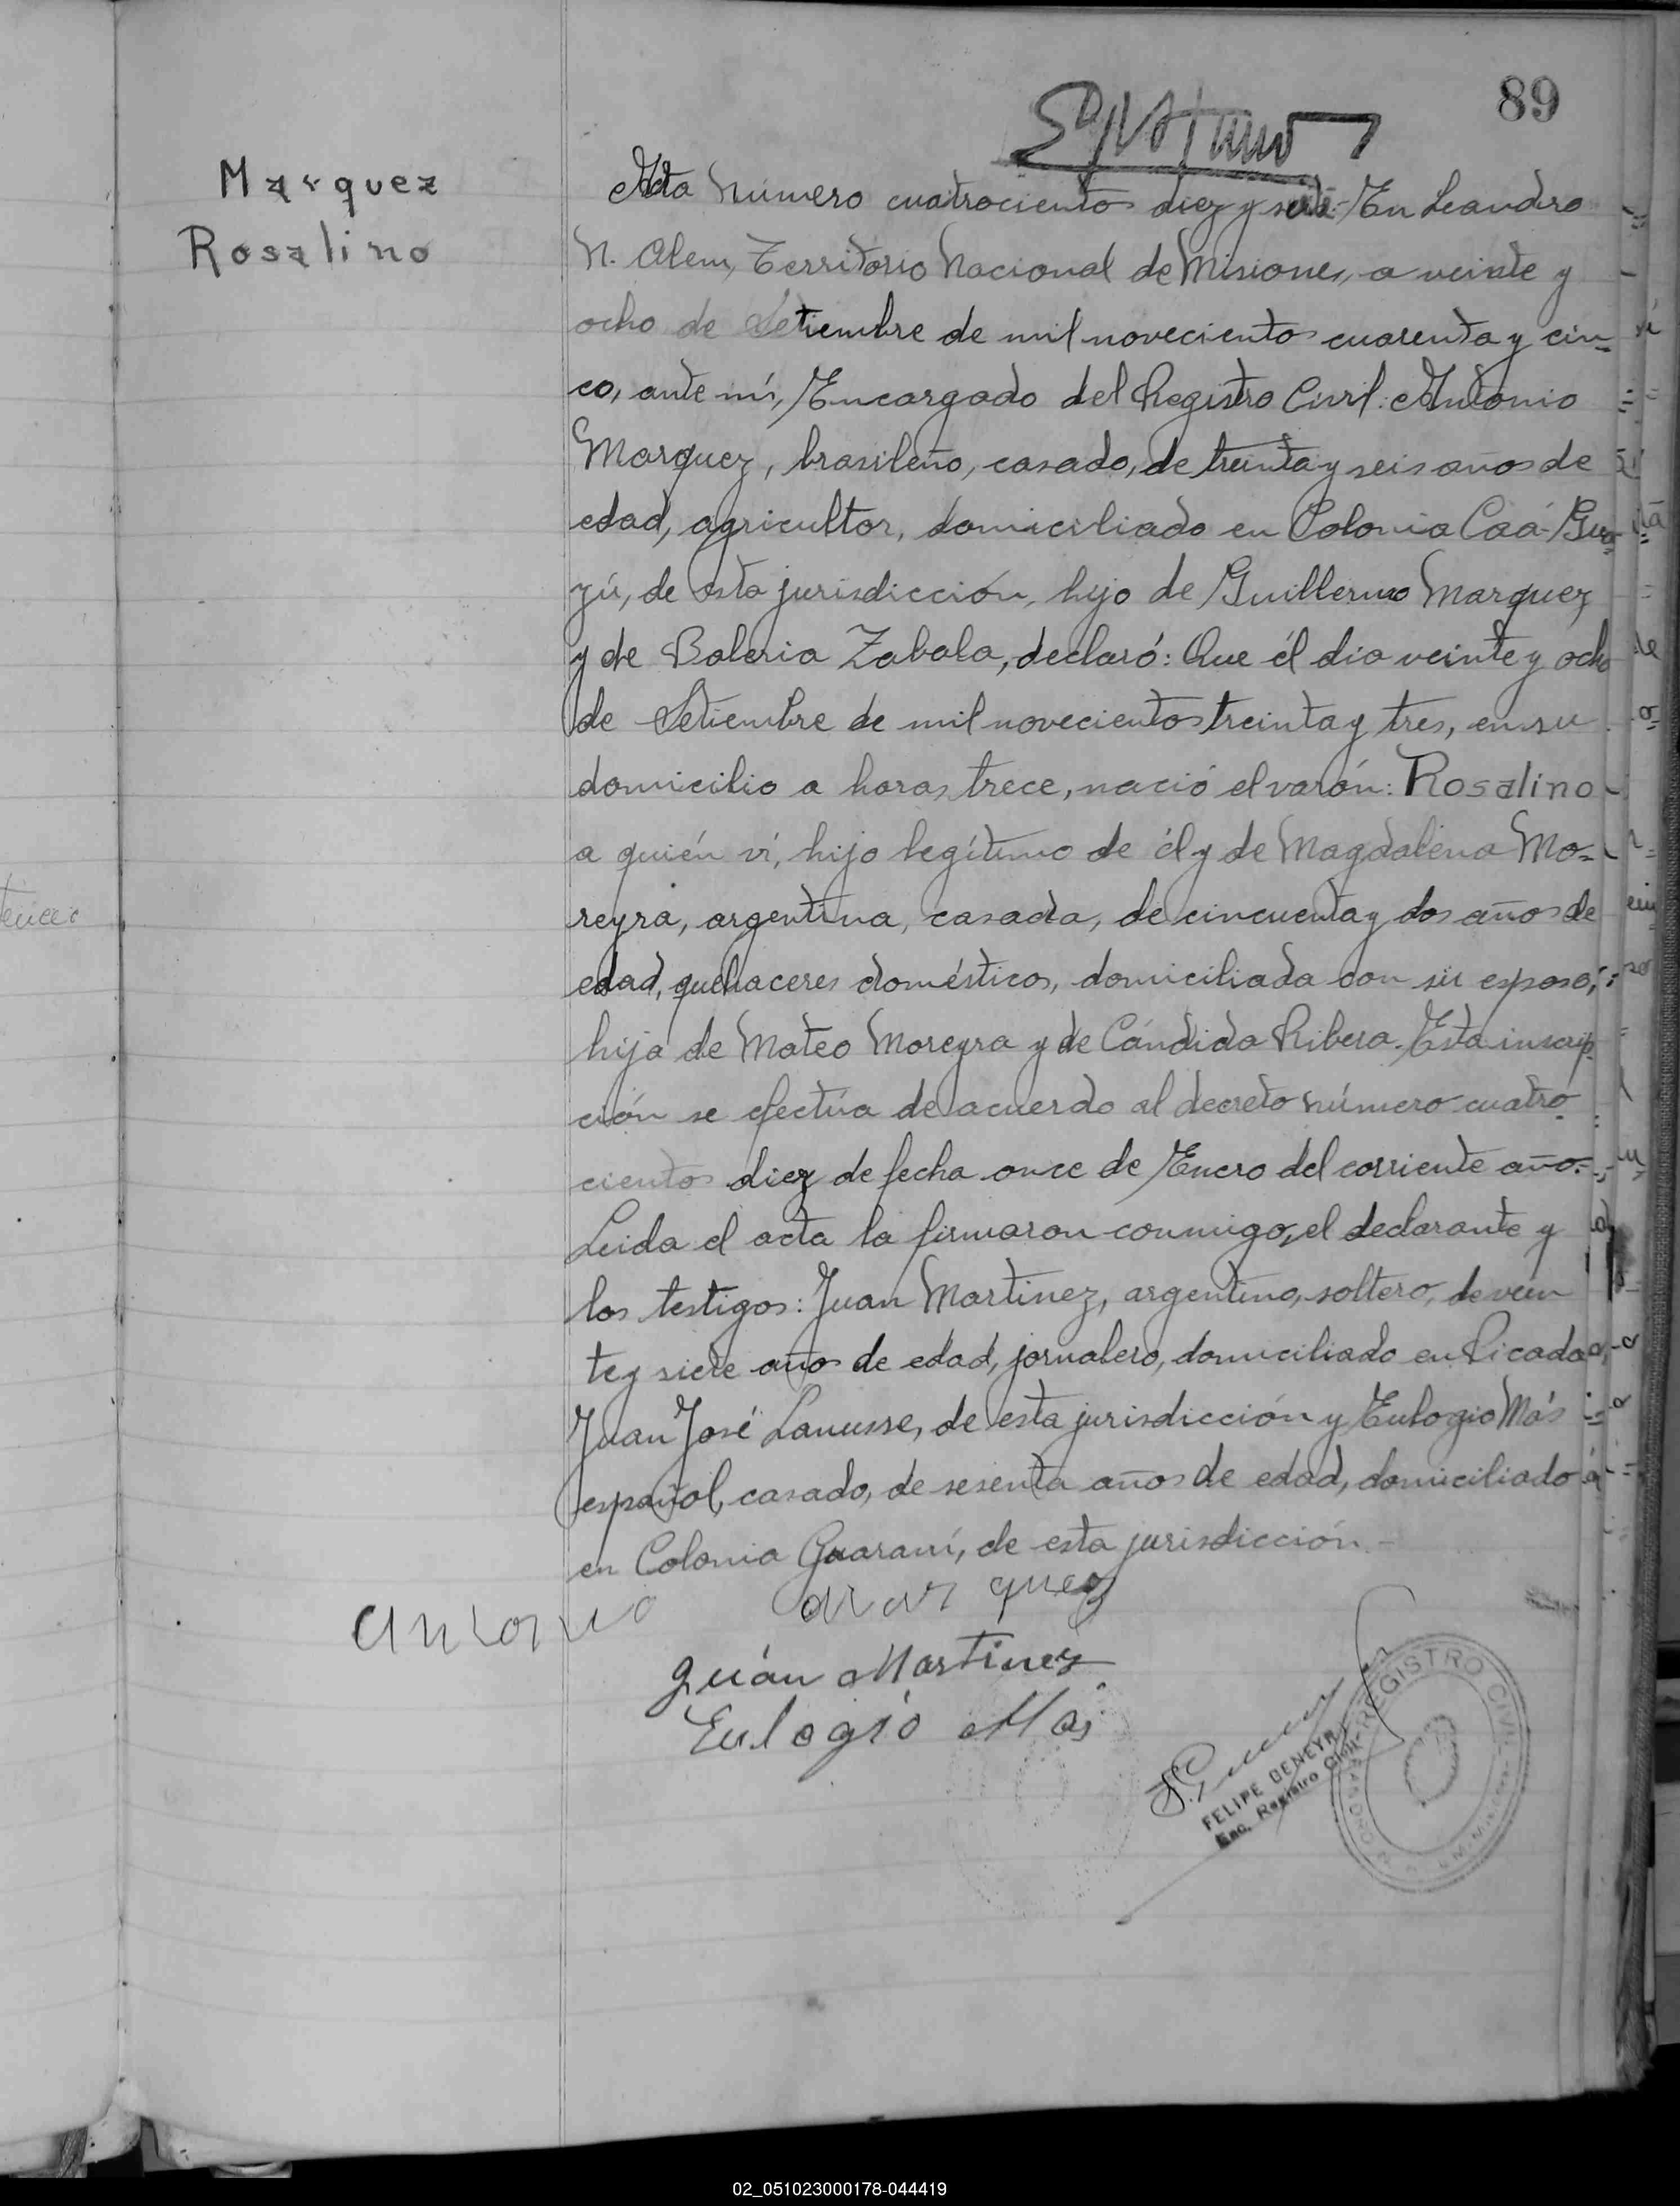 89
Marquez
Rosalino
Acta Número cuatrocientos diez y siete.- En Leandro
N. Alem, Territorio Nacional de Misiones, a veinte y
ocho de Setiembre de mil novecientos cuarenta y cin-
co, ante mí, Encargado del Registro Civil: Antonio
Marquez, brasileño, casado, de treinta y seis años de
edad, agricultor, domiciliado en Colonia Caá-Gua-
zú, de esta jurisdicción, hijo de Guillermo Marquez
y de Baleria Zabala, declaró: Que él dia veinte y ocho
de Setiembre de mil novecientos treinta y tres, en su
domicilio a horas trece, nació el varón: Rosalino
a quién vi, hijo legítimo de él y de Magdalena Mo-
reyra, argentina, casada, de cincuenta y dos años de
edad, quehaceres domésticos, domiciliada con su esposo,
hija de Mateo Moreyra y de Cándida Ribera. Esta inscrip-
ción se efectúa de acuerdo al decreto número cuatro-
cientos diez de fecha once de Enero del corriente año.-
Leida el acta la firmaron conmigo, el declarante y
los testigos: Juan Martinez, argentino, soltero, de vein
te y siete años de edad, jornalero, domiciliado en Picada
Juan José Lanusse, de esta jurisdicción y Eulogio Más
español, casado, de sesenta años de edad, domiciliado
en Colonia Guaraní, de esta jurisdicción.-
Antonio Marquez
Juán Martinez
Eulogio Mas
FELIPE GENEYR
Enc. Registro Civil
REGISTRO CIVIL
02_051023000178-044419